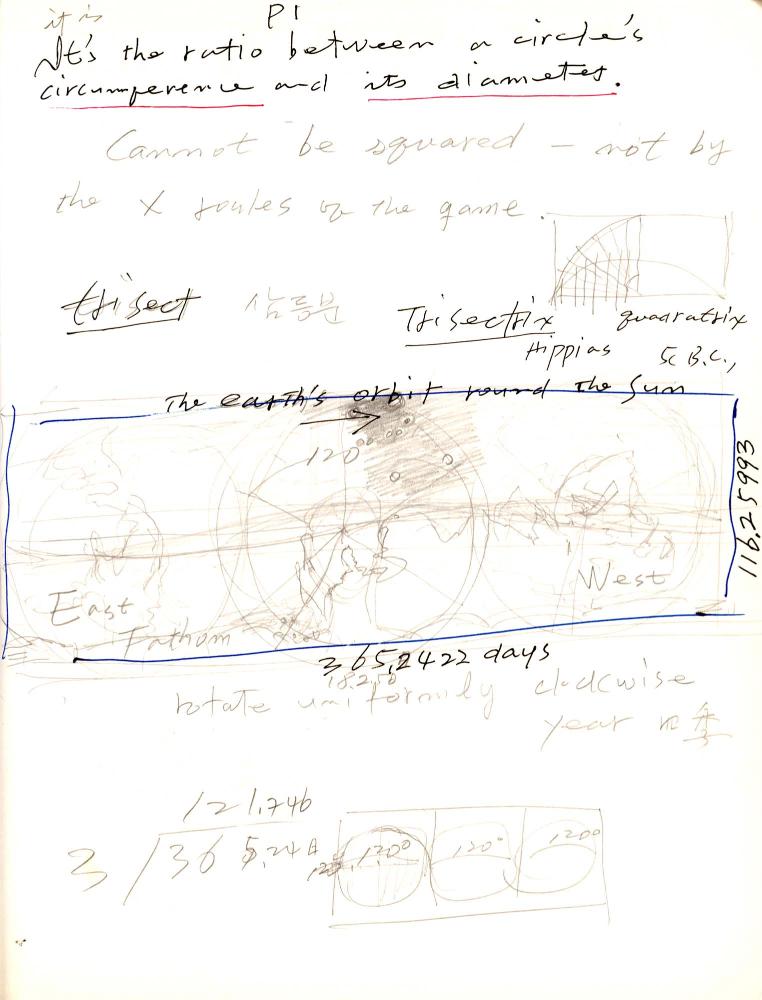 it is
PI
It's the ratio between a circle's
circumference and its diameter.
Cannot be squared - not by
the X roules of the game.
trisect 삼등분 Trisectrix quadratrix
Hippias 5c B.C.,
The earth's orbit round the Sun
120
116.25993
East
West
Fathom
365,2422 days
rotate uniformily clockwise
year
121,746
3 365,24
120° 120° 120°